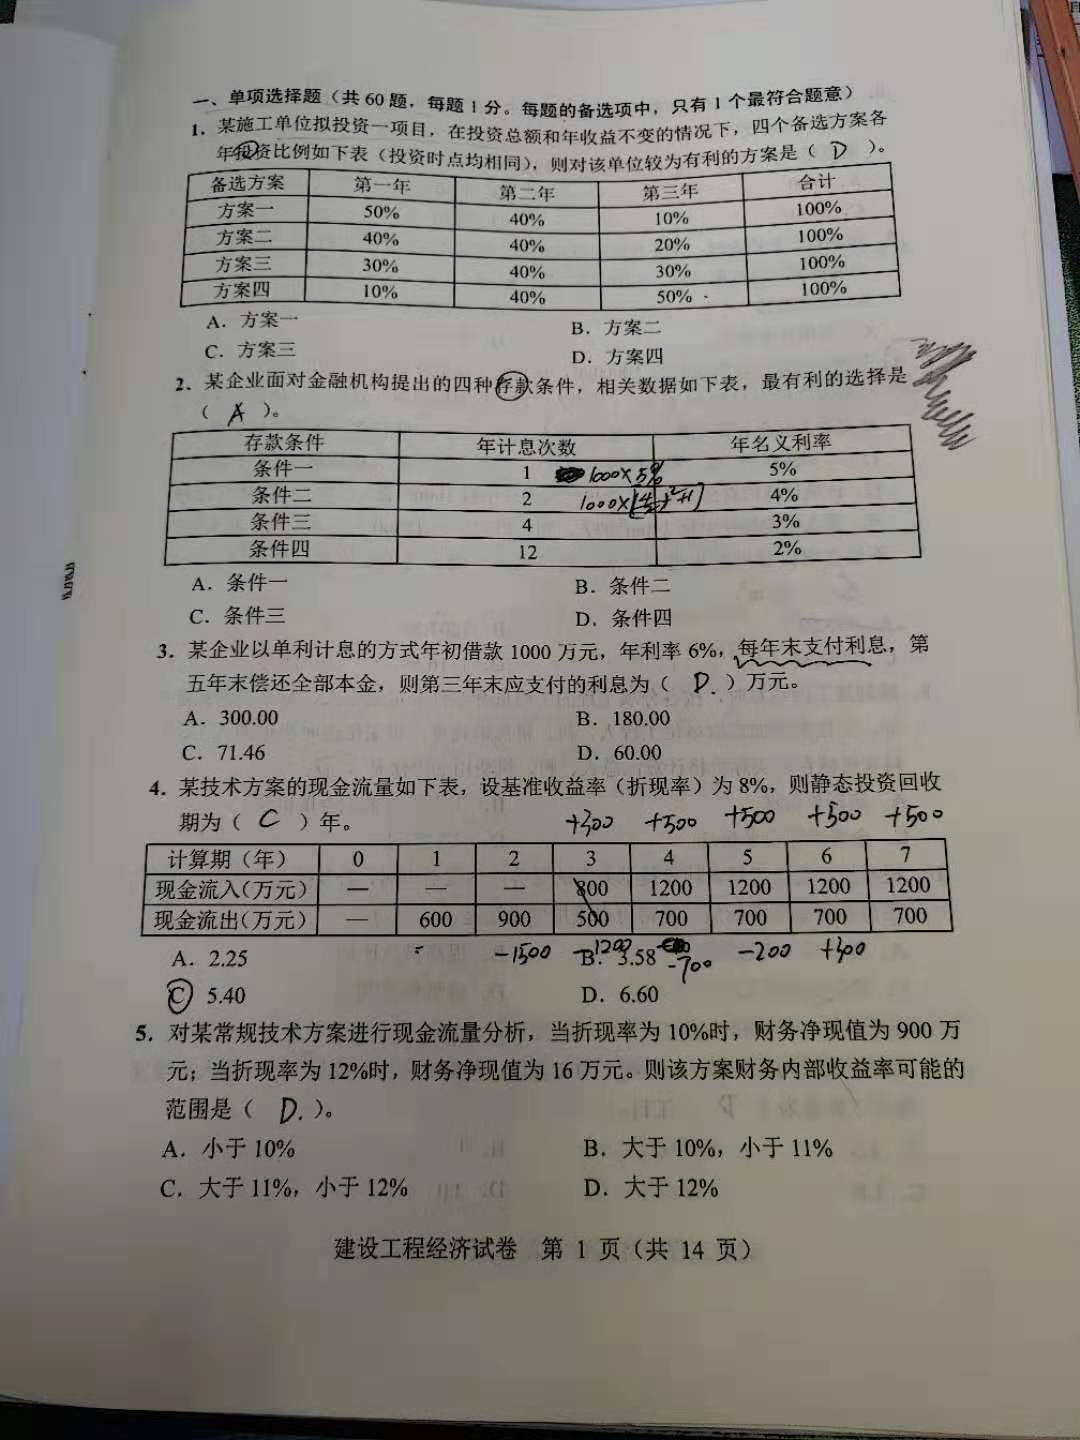 一、单项选择题（共 60 题，每题 1 分。每题的备选项中，只有 1 个最符合题意）
1. 某施工单位拟投资一项目，在投资总额和年收益不变的情况下，四个备选方案各
年投资比例如下表（投资时点均相同），则对该单位较为有利的方案是（ D ）。
备选方案 第一年 第二年 第三年 合计
方案一 50% 40% 10% 100%
方案二 40% 40% 20% 100%
方案三 30% 40% 30% 100%
方案四 10% 40% 50% 100%
A. 方案一 B. 方案二
C. 方案三 D. 方案四
2. 某企业面对金融机构提出的四种存款条件，相关数据如下表，最有利的选择是
（ A ）。
存款条件 年计息次数 年名义利率
条件一 1 1000×5% 5%
条件二 2 1000× 4%
条件三 4 3%
条件四 12 2%
A. 条件一 B. 条件二
C. 条件三 D. 条件四
3. 某企业以单利计息的方式年初借款 1000 万元，年利率 6%，每年末支付利息，第
五年末偿还全部本金，则第三年末应支付的利息为（ D. ）万元。
A. 300.00 B. 180.00
C. 71.46 D. 60.00
4. 某技术方案的现金流量如下表，设基准收益率（折现率）为 8%，则静态投资回收
期为（ C ）年。
+300 +500 +500 +500 +500
计算期（年） 0 1 2 3 4 5 6 7
现金流入(万元) — — — 800 1200 1200 1200 1200
现金流出(万元) — 600 900 500 700 700 700 700
-1500 -1200 -700 -200 +300
A. 2.25 B. 3.58
C 5.40 D. 6.60
5. 对某常规技术方案进行现金流量分析，当折现率为 10%时，财务净现值为 900 万
元；当折现率为 12%时，财务净现值为 16 万元。则该方案财务内部收益率可能的
范围是（ D. ）。
A. 小于 10% B. 大于 10%，小于 11%
C. 大于 11%，小于 12% D. 大于 12%
建设工程经济试卷 第 1 页（共 14 页）